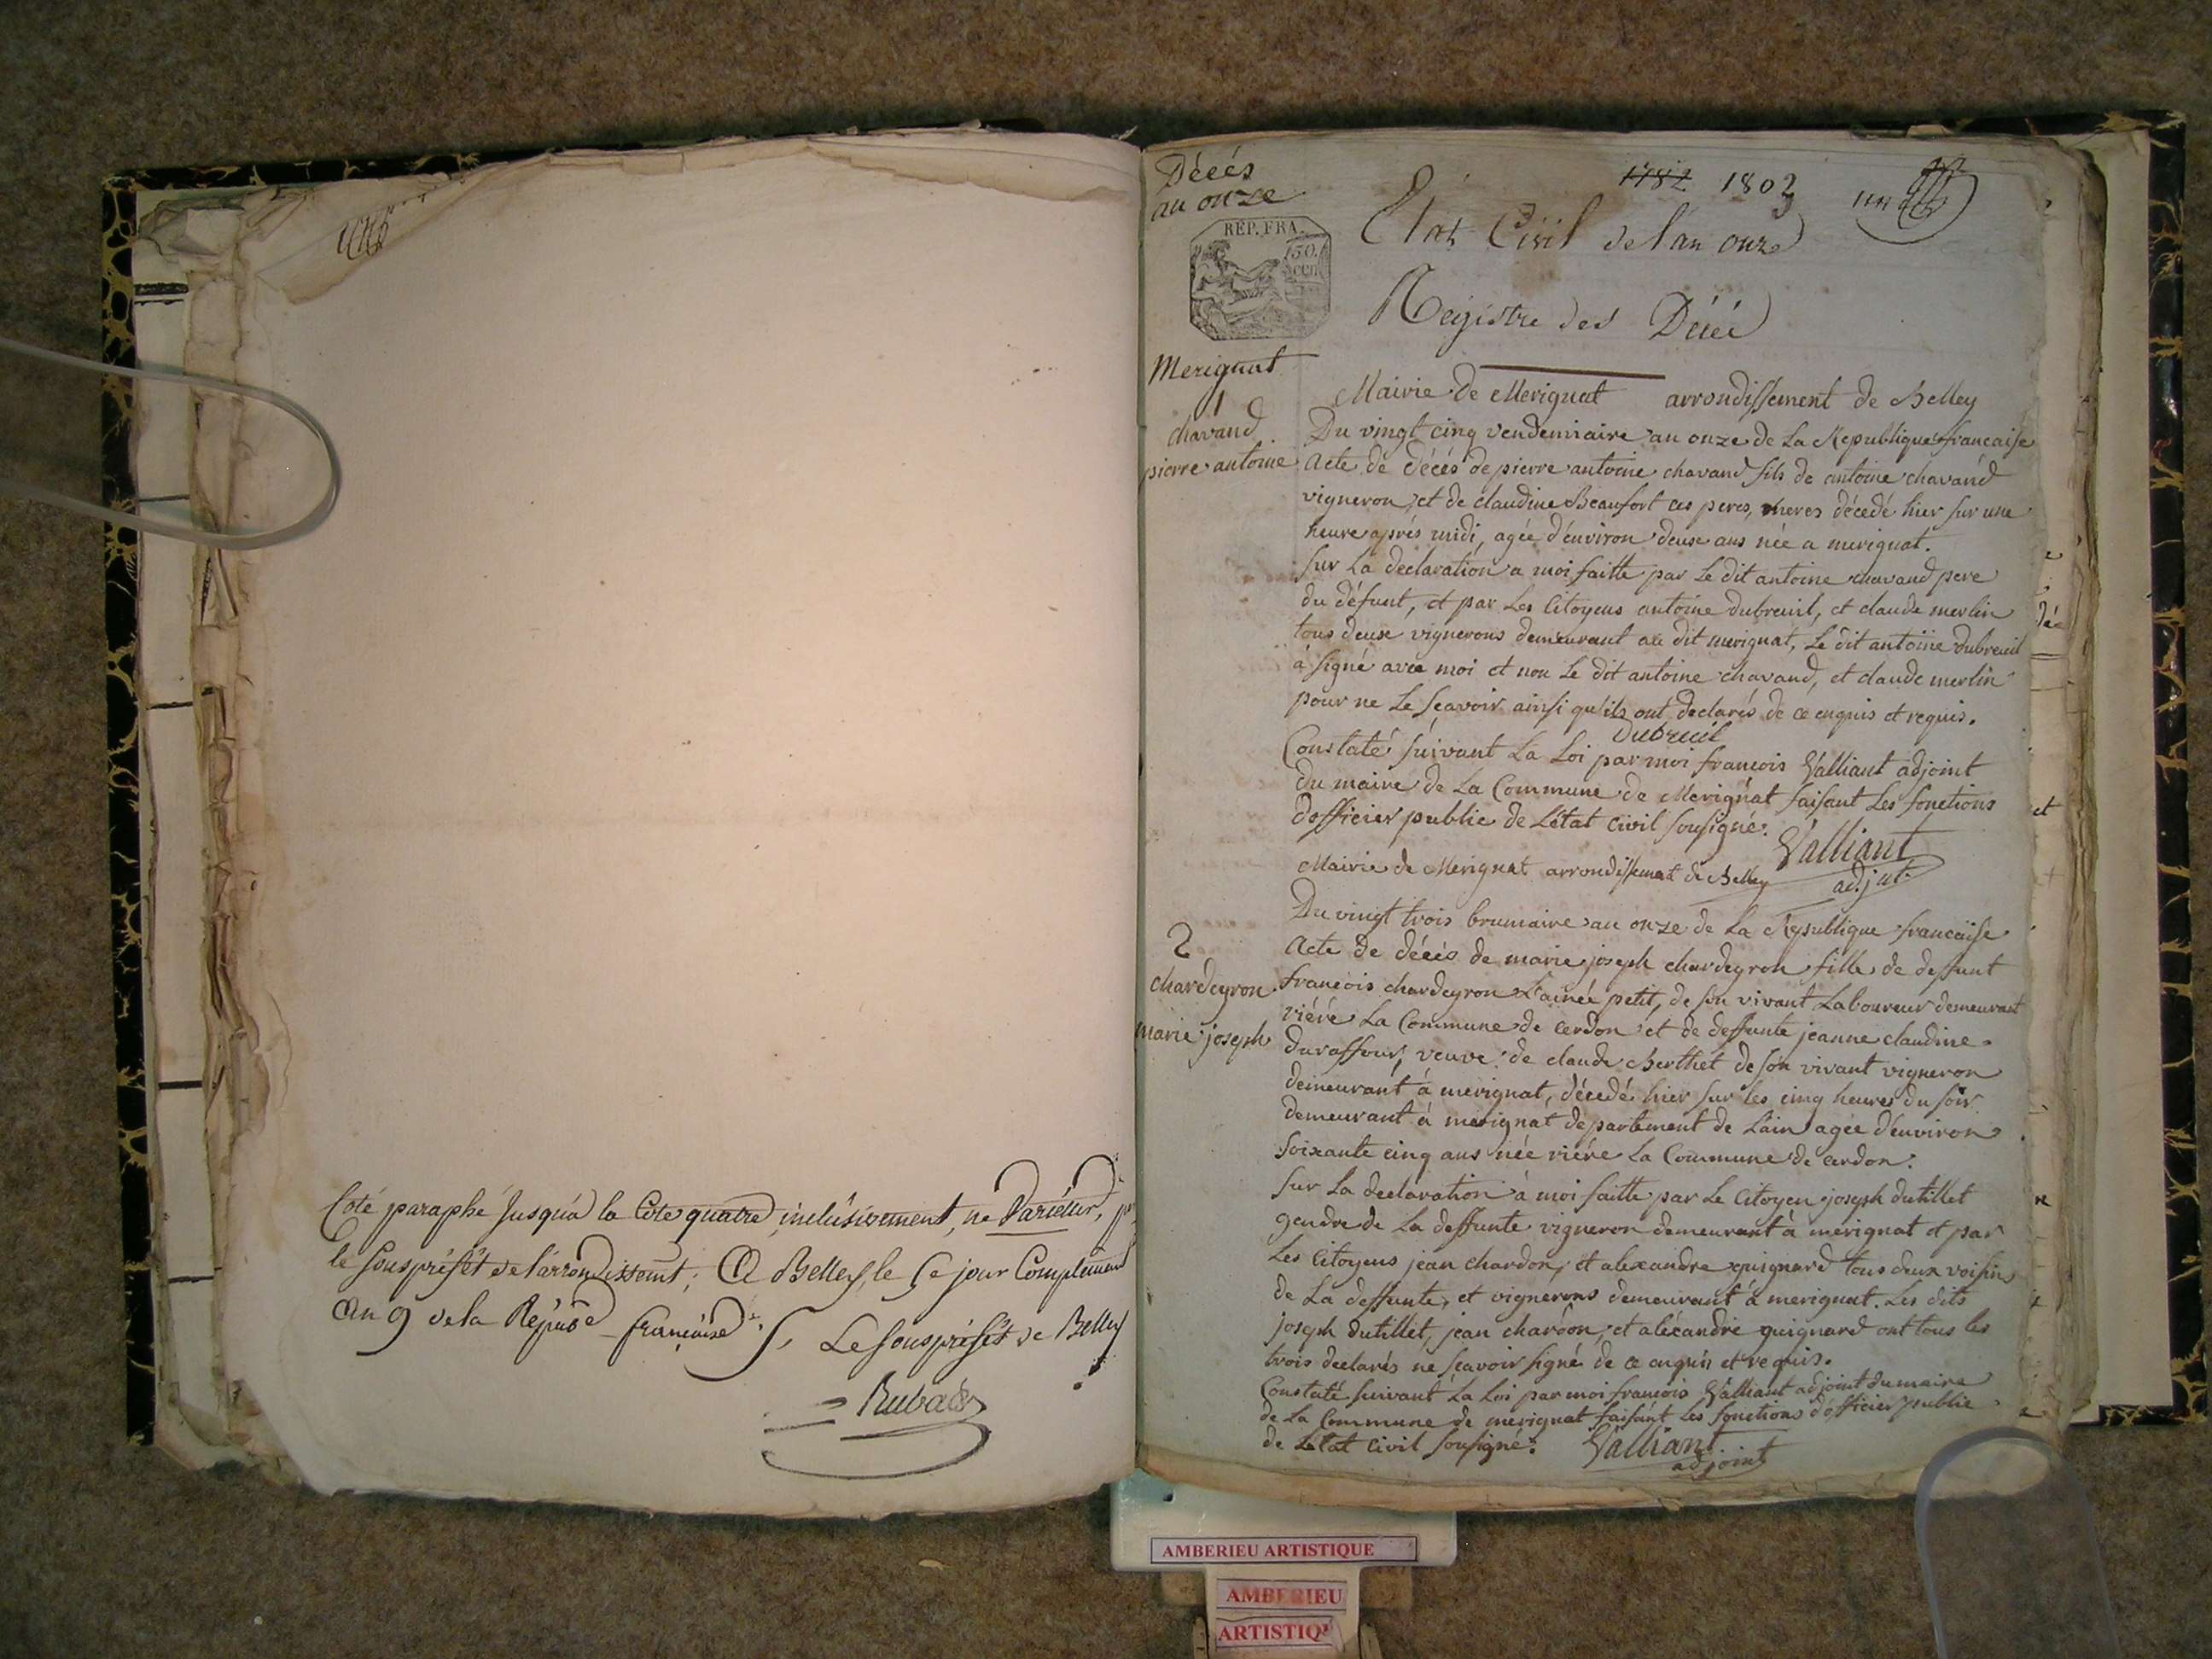 Coté paraphé Jusqu'à la Cote quatre, inclusivement, ne Varietur,
le souspréfét de l'arrondissemt; A Belley, le 5e jour Complément
An 9 de la Répub française. Le souspréfét de Belley
Rubat
Décés
an onze
1782 1803
un
REP. FRA.
Etat Civil de l'an onze
Régistre des Décé
Merignat
1
chavand
pierre antoine
Mairie de Merignat arrondissement de Belley
Du vingt cinq vendemiaire an onze de La Republique francaise
Acte de décés de pierre antoine chavand fils de antoine chavand
vigneron, et de claudine Beaufort ces peres, meres décedé hier sur une
heure aprés midi, agée d'énviron deux ans née a merignat.
Sur La declaration a moi faitte par Le dit antoine chavand pere
du défunt, et par Les Citoyens antoine dubreuil, et claude merlin
tous deux vignerons demeurant au dit merignat, Le dit antoine dubreuil
à signé avec moi et non Le dit antoine chavand, et claude merlin
pour ne Le Scavoir ainsi qu'ils ont declarés de ce enquis et requis.
Dubreuil
Constaté suivant La Loi par moi francois Valliant adjoint
du maire de La Commune de Merignat faisant Les fonctions
d'officier public de L'état Civil sousigné.
Valliant
adjut
Mairie de Merignat arrondissement de Belley
2
chardeyron
marie joseph
Du vingt trois brumaire an onze de La Republique francaise
Acte de décés de marie joseph chardeyron fille de deffunt
francois chardeyron L'ainée petit, de son vivant Laboureur demeurant
riéré La Commune de cerdon et de deffunte jeanne claudine
duraffour, veuve de claude Berthet de son vivant vigneron
demeurant à merignat, décedé hier sur les cinq heures du soir
demeurant à merignat département de Lain agée d'environ
soixante cinq ans née riére La Commune de cerdon.
Sur La declaration à moi faitte par Le Citoyen joseph dutillet
gendre de La deffunte vigneron demeurant à merignat et par
Les Citoyens jean chardon, et alexandre guignard tous deux voisins
de La deffunte, et vignerons demeurant à merignat. Les dits
joseph dutillet, jean chardon, et aléxandre guignard ont tous les
trois declarés ne scavoir signé de ce enquis et requis.
Constaté suivant La Loi par moi francois Valliant adjoint du maire
de La Commune de merignat faisant Les fonctions d'officier public
de L'état Civil sousigné.
Valliant
adjoint
AMBERIEU ARTISTIQUE
AMBERIEU
ARTISTIQ